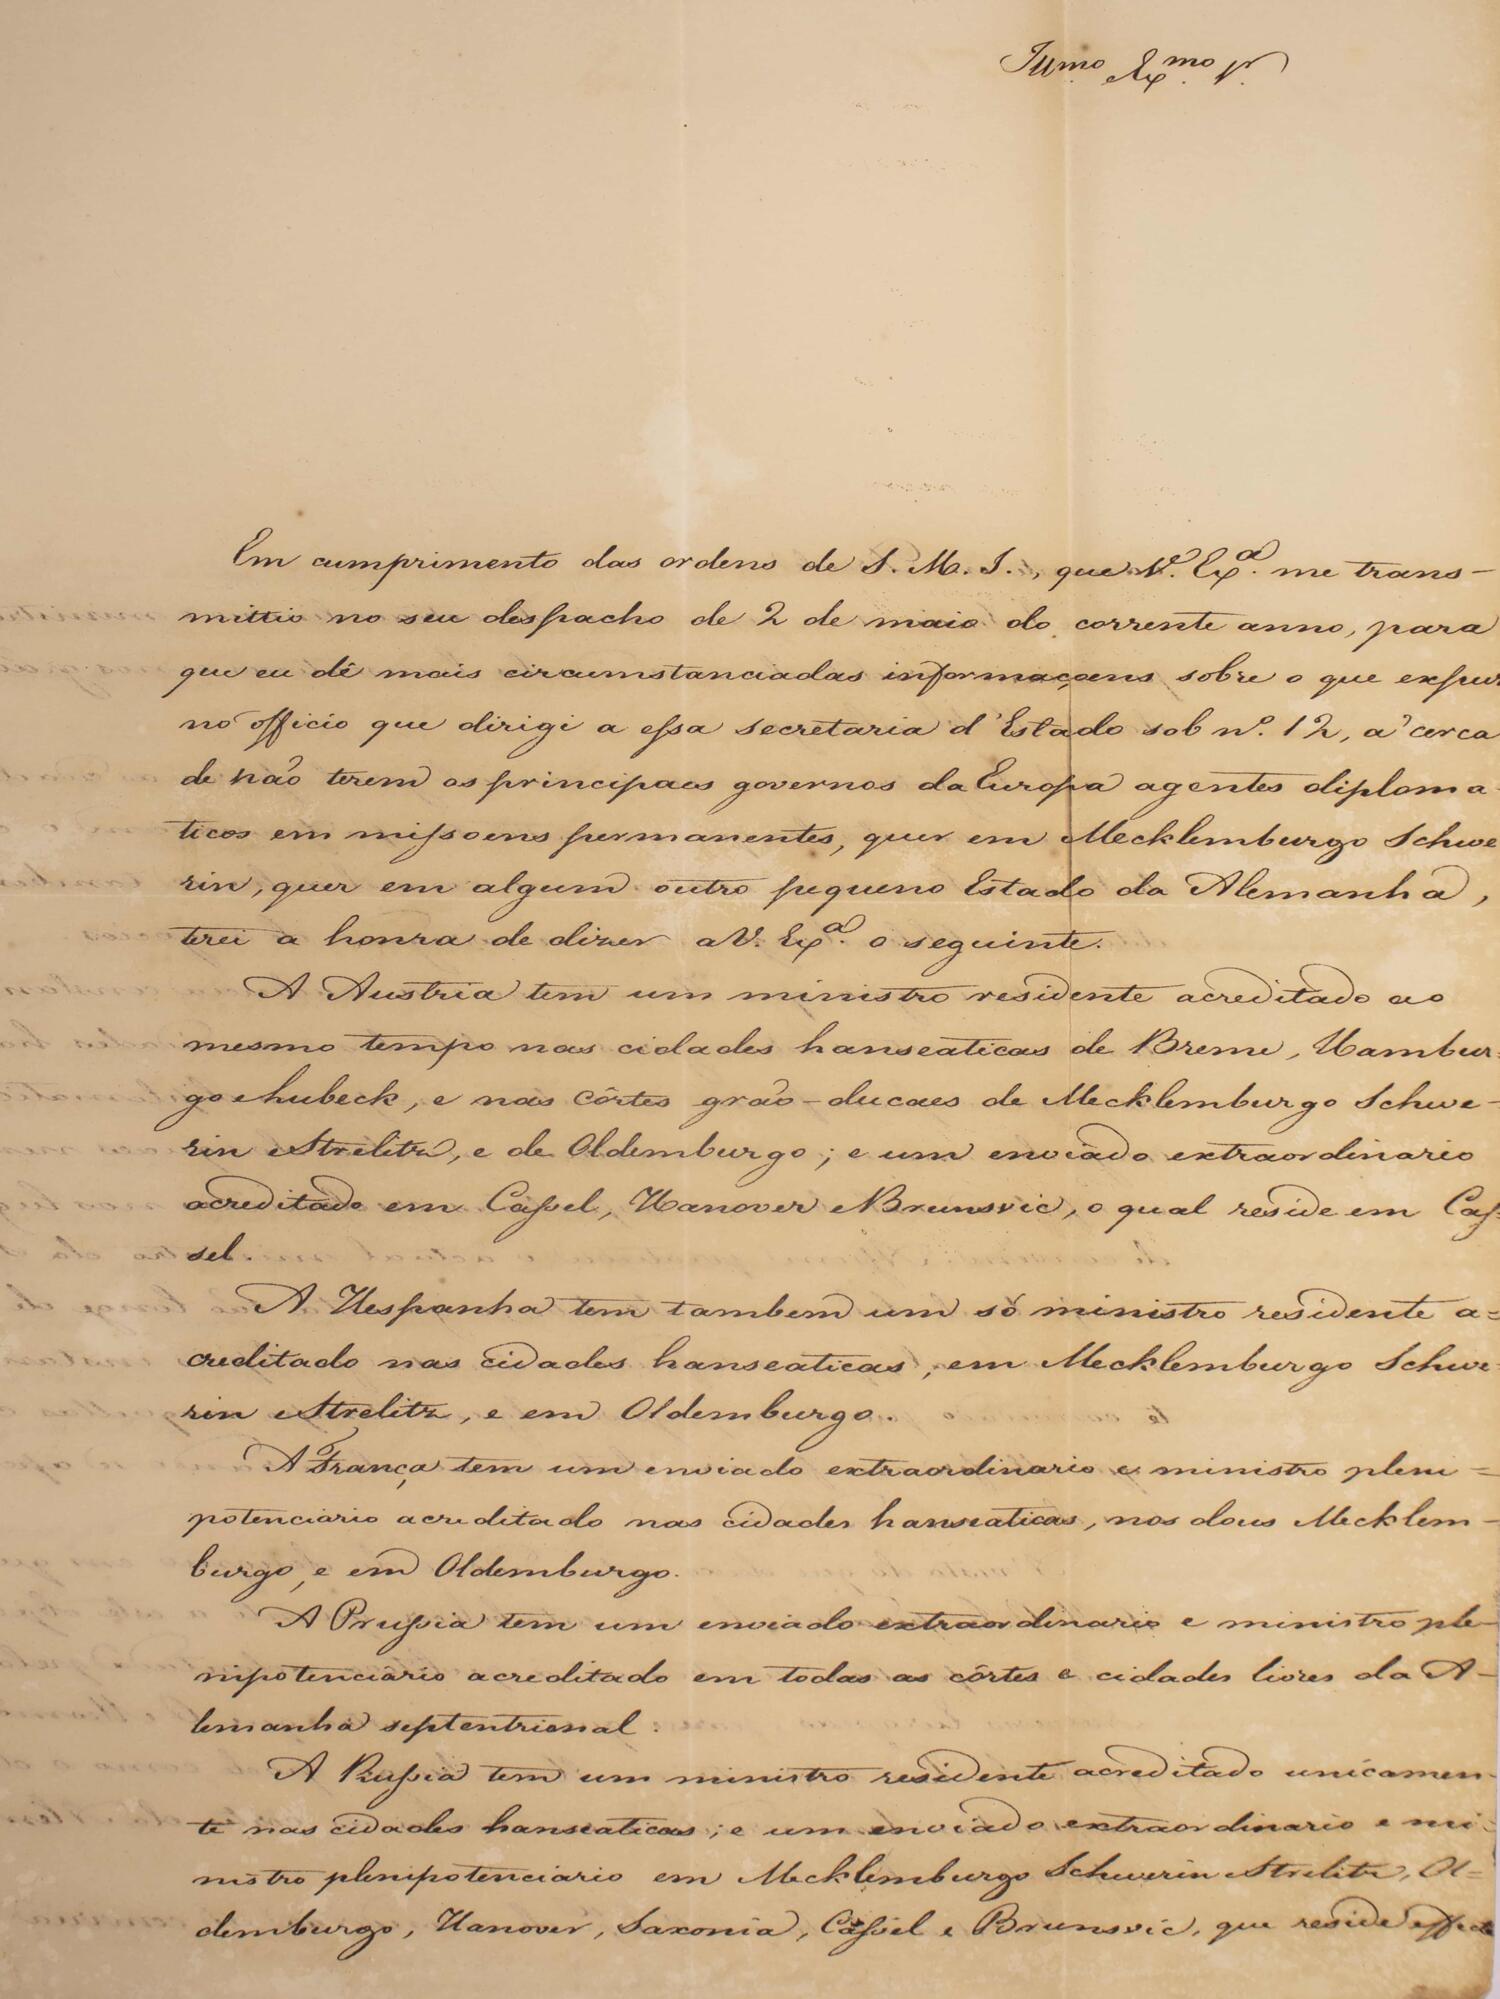 Illmo. Exmo. Sr.
Em cumprimento das ordens de S. M. I., que V. Exa. me trans-
mittio no seu despacho de 2 de maio do corrente anno, para
que eu dê mais circumstanciadas informaçoens sobre o que expuz
no officio que dirigi a essa secretaria d'Estado sob nº. 12, á cerca
de não terem os principaes governos da Europa agentes diploma-
ticos em missoens permanentes, quer em Mecklemburgo Schwe
rin, quer em algum outro pequeno Estado da Alemanha,
terei a honra de dizer a V. Exa. o seguinte.
A Austria tem um ministro residente acreditado ao
mesmo tempo nas cidades hanseaticas de Breme, Hambur-
go e Lubeck, e nas côrtes grão-ducaes de Mecklemburgo Schwe-
rin e Strelitz, e de Oldemburgo; e um enviado extraordinario
acreditado em Cassel, Hanover e Brunsvic, o qual reside em Cas-
sel.
A Hespanha tem tambem um só ministro residente a=
creditado nas cidades hanseaticas, em Mecklemburgo Schwe-
rin e Strelitz, e em Oldemburgo.
A França tem um enviado extraordinario e ministro pleni=
potenciario acreditado nas cidades hanseaticas, nos dous Mecklem-
burgo, e em Oldemburgo.
A Prussia tem um enviado extraordinario e ministro ple-
nipotenciario acreditado em todas as côrtes e cidades livres da A-
lemanha septentrional.
A Russia tem um ministro residente acreditado unicamen-
te nas cidades hanseaticas; e um enviado extraordinario e mi-
nistro plenipotenciario em Mecklemburgo Schwerin e Strelitz, Ol=
demburgo, Hanover, Saxonia, Cassel e Brunsvic, que reside effecti